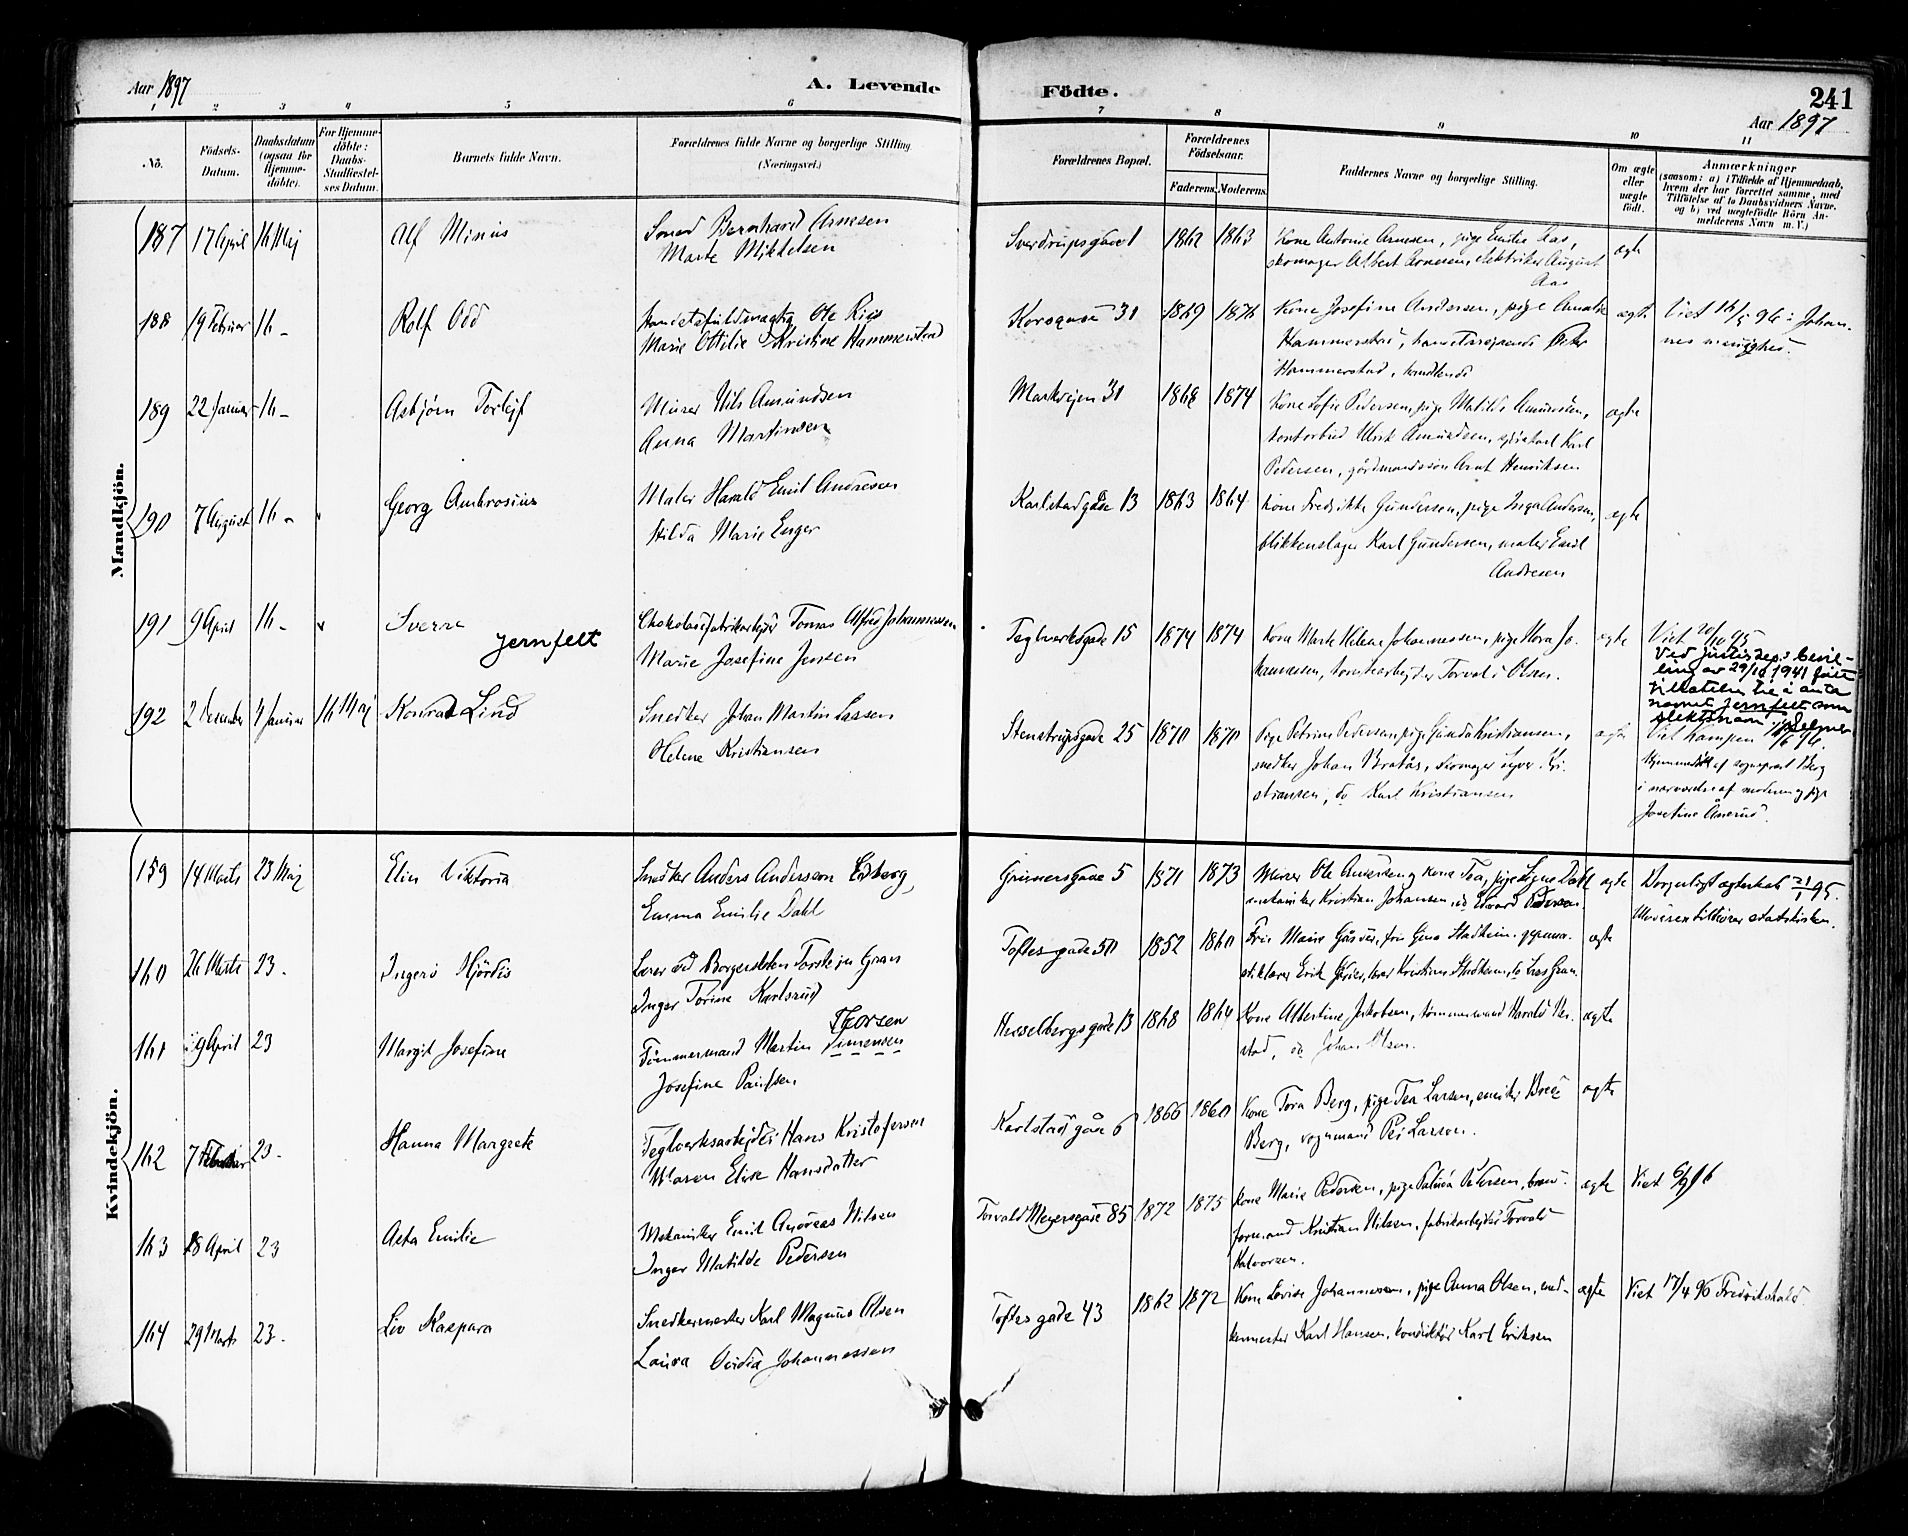 Aar 1897
A. Levende
Födte.
241
Aar 1897
1 2 3 4 5 6 7 8 9 10 11
No.
Födsels-
Datum.
Daabsdatum
(ogsaa for
Hjemme-
döbte).
For Hjemme-
döbte:
Daabs-
Stadfæstel-
ses Datum.
Barnets fulde Navn.
Forældrenes fulde Navne og borgerlige Stilling
(Næringsvei.)
Forældrenes Bopæl.
Forældrenes
Födselsaar.
Faderens.
Moderens.
Faddernes Navne og borgerlige Stilling.
Om ægte
eller
uægte
födt.
Anmærkninger
(saasom: a) i Tilfælde af Hjemmedaab,
hvem der har forrettet samme, med
Tilföielse af to Daabsvidners Navne,
og b) ved uægtefödte Börn An-
melderens Navn m. V.)
Mandkjön.
187 17 April 16 Maj Alf Minius
Bernhard Arnesen
Marte Mikkelsen
Sverdrupsgade 1 1862 1863
Kone Antonie Arnesen, pige Emilie Aas,
skomager Albert Arnesen, elektriker August
Aas
ægte
188 19 Februar 16 - Rolf Odd
Handelsfuldmægtig Ole Riis
Marie Ottilie Kristine Hammerstad
Korsgade 31 1869 1876
Kone Josefine Andersen, pige Amalie
Hammerstad, handelsrejsende Peter
Hammerstad, handlende
ægte
Viet 16/5 96 i Johan-
nes menighed.
189 22 Januar 16 - Asbjørn Torleif
Murer Nils Amundsen
Anna Martinsen
Markvejen 31 1868 1874
Kone Sofie Pedersen, pige Matilde Amundsen,
kontorbud Ulrik Amundsen, Karl
Pedersen, gårdmandssøn Arnt Henriksen
ægte
190 7 August 16 - Georg Ambrosius
Maler Harald Emil Andresen
Hilda Marie Enger
Karlstadgade 13 1863 1864
Kone Fredrikke Gundersen, pige Inga Andersen,
blikkenslager Karl Gundersen, maler Emil
Andresen
ægte
191 9 April 16 - Sverre
Jernfelt
Chokoladefabrikarbejder Tomas Alfred Johannessen
Marie Josefine Jensen
Teglverksgade 15 1874 1874
Kone Marte Helene Johannessen, pige Hora Jo-
hannessen, Torvald Olsen.
ægte
Viet 20/10 95
Ved Justisdep.s bevil-
ling av 29/10 1941 fått
tillatelse til å anta
navnet Jernfelt som
slektsnavn.
192 2 December 4 Januar 16 Maj Konrad Lind
Snedker Johan Martin Lassen
Helene Kristiansen
Stenstrupsgade 25 1870 1870
Pige Petrine Pedersen, pige Gunda Kristiansen,
snedker Johan Bratås, skomager Kri-
stiansen, do Karl Kristiansen
ægte
Viet Kampen 6/6 96.
Hjemmedøbt af sognepræst Berg
i nærværelse af moderen og pige
Josefine Ånerud.
Kvindekjön.
159 14 Marts 23 Maj Elin Viktoria
Snedker Anders Andersson Edberg,
Emma Emilie Dahl
Grünersgade 5 1871 1873
Murer Ole Andersen og kone Tea, pige Signe Dahl
mekaniker Kristian Johansen, do Edvard Pedersen
ægte
Borgerligt ægteskab 21/1 95.
Moderen tilhører statskirken.
160 26 Marts 23. Ingerd Hjördis
Lærer ved Borgerskolen Torstejn Gran
Inger Torine Karlsrud
Toftesgade 50 1852 1860
Fru Marie Gårder, fru Gina Stadheim,
lærer Kristian Stadheim, do Lars Gran.
ægte
161 9 April 23 Margit Josefine
Thorsen
Tömmermand Martin Simensen
Josefine Paulsen
Hesselbergs gade 13 1868 1864
Kone Albertine Jakobsen, tømmermand Harald
stad, do Johan Olsen.
ægte
162 7 Februar 23 - Hanna Margrete
Teglverksarbejder Hans Kristofersen
Maren Elise Hansdatter
Karlstadgade 6 1866 1860
Kone Tora Berg, pige Tea Larsen,
Berg, vognmand Larsen.
ægte
163 28 April 23 Asta Emilie
Mekaniker Emil Andreas Nilsen
Inger Matilde Pedersen
Torvald Meyersgade 85 1872 1875
Kone Marie Pedersen, pige Petersen,
formand Kristian Nilsen, fabrikarbejder Torvald
Halvorsen.
ægte
Viet 6/9 96
164 29 Marts 23 - Liv Kaspara
Snedkermester Karl Magnus Olsen
Laura Johannessen
Toftes gade 43 1862 1872
Kone Lovise Johannessen, pige Anna Olsen, sned-
kermester Karl Hansen, konduktør Karl Eriksen
ægte
Viet 17/4 96 Fredrikshald.